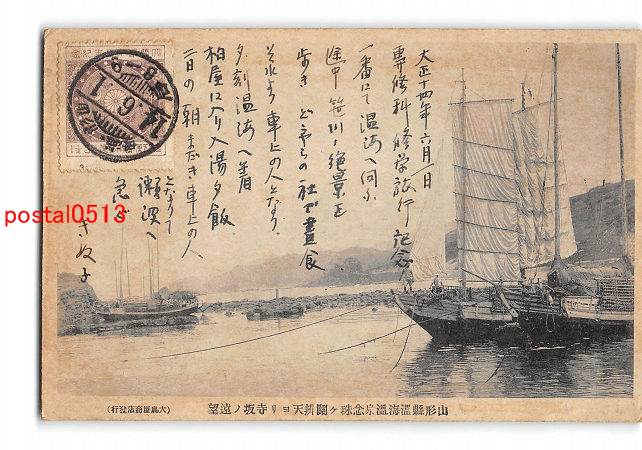 大正十四年六月一日
専修科修学旅行記念
一番にて温海へ向ふ
途中笹川ノ絶景を
歩き どやらの社で昼食
それより車上の人となり
夕刻温海へ着
柏屋に入り入湯夕飯
二日の朝まだき車上の人
となりて
瀬波へ
急ぐ
きぬ子
14.6.1
postal0513
山形縣温海温泉念珠ケ關辨天ヨリ寺坂ノ遠望